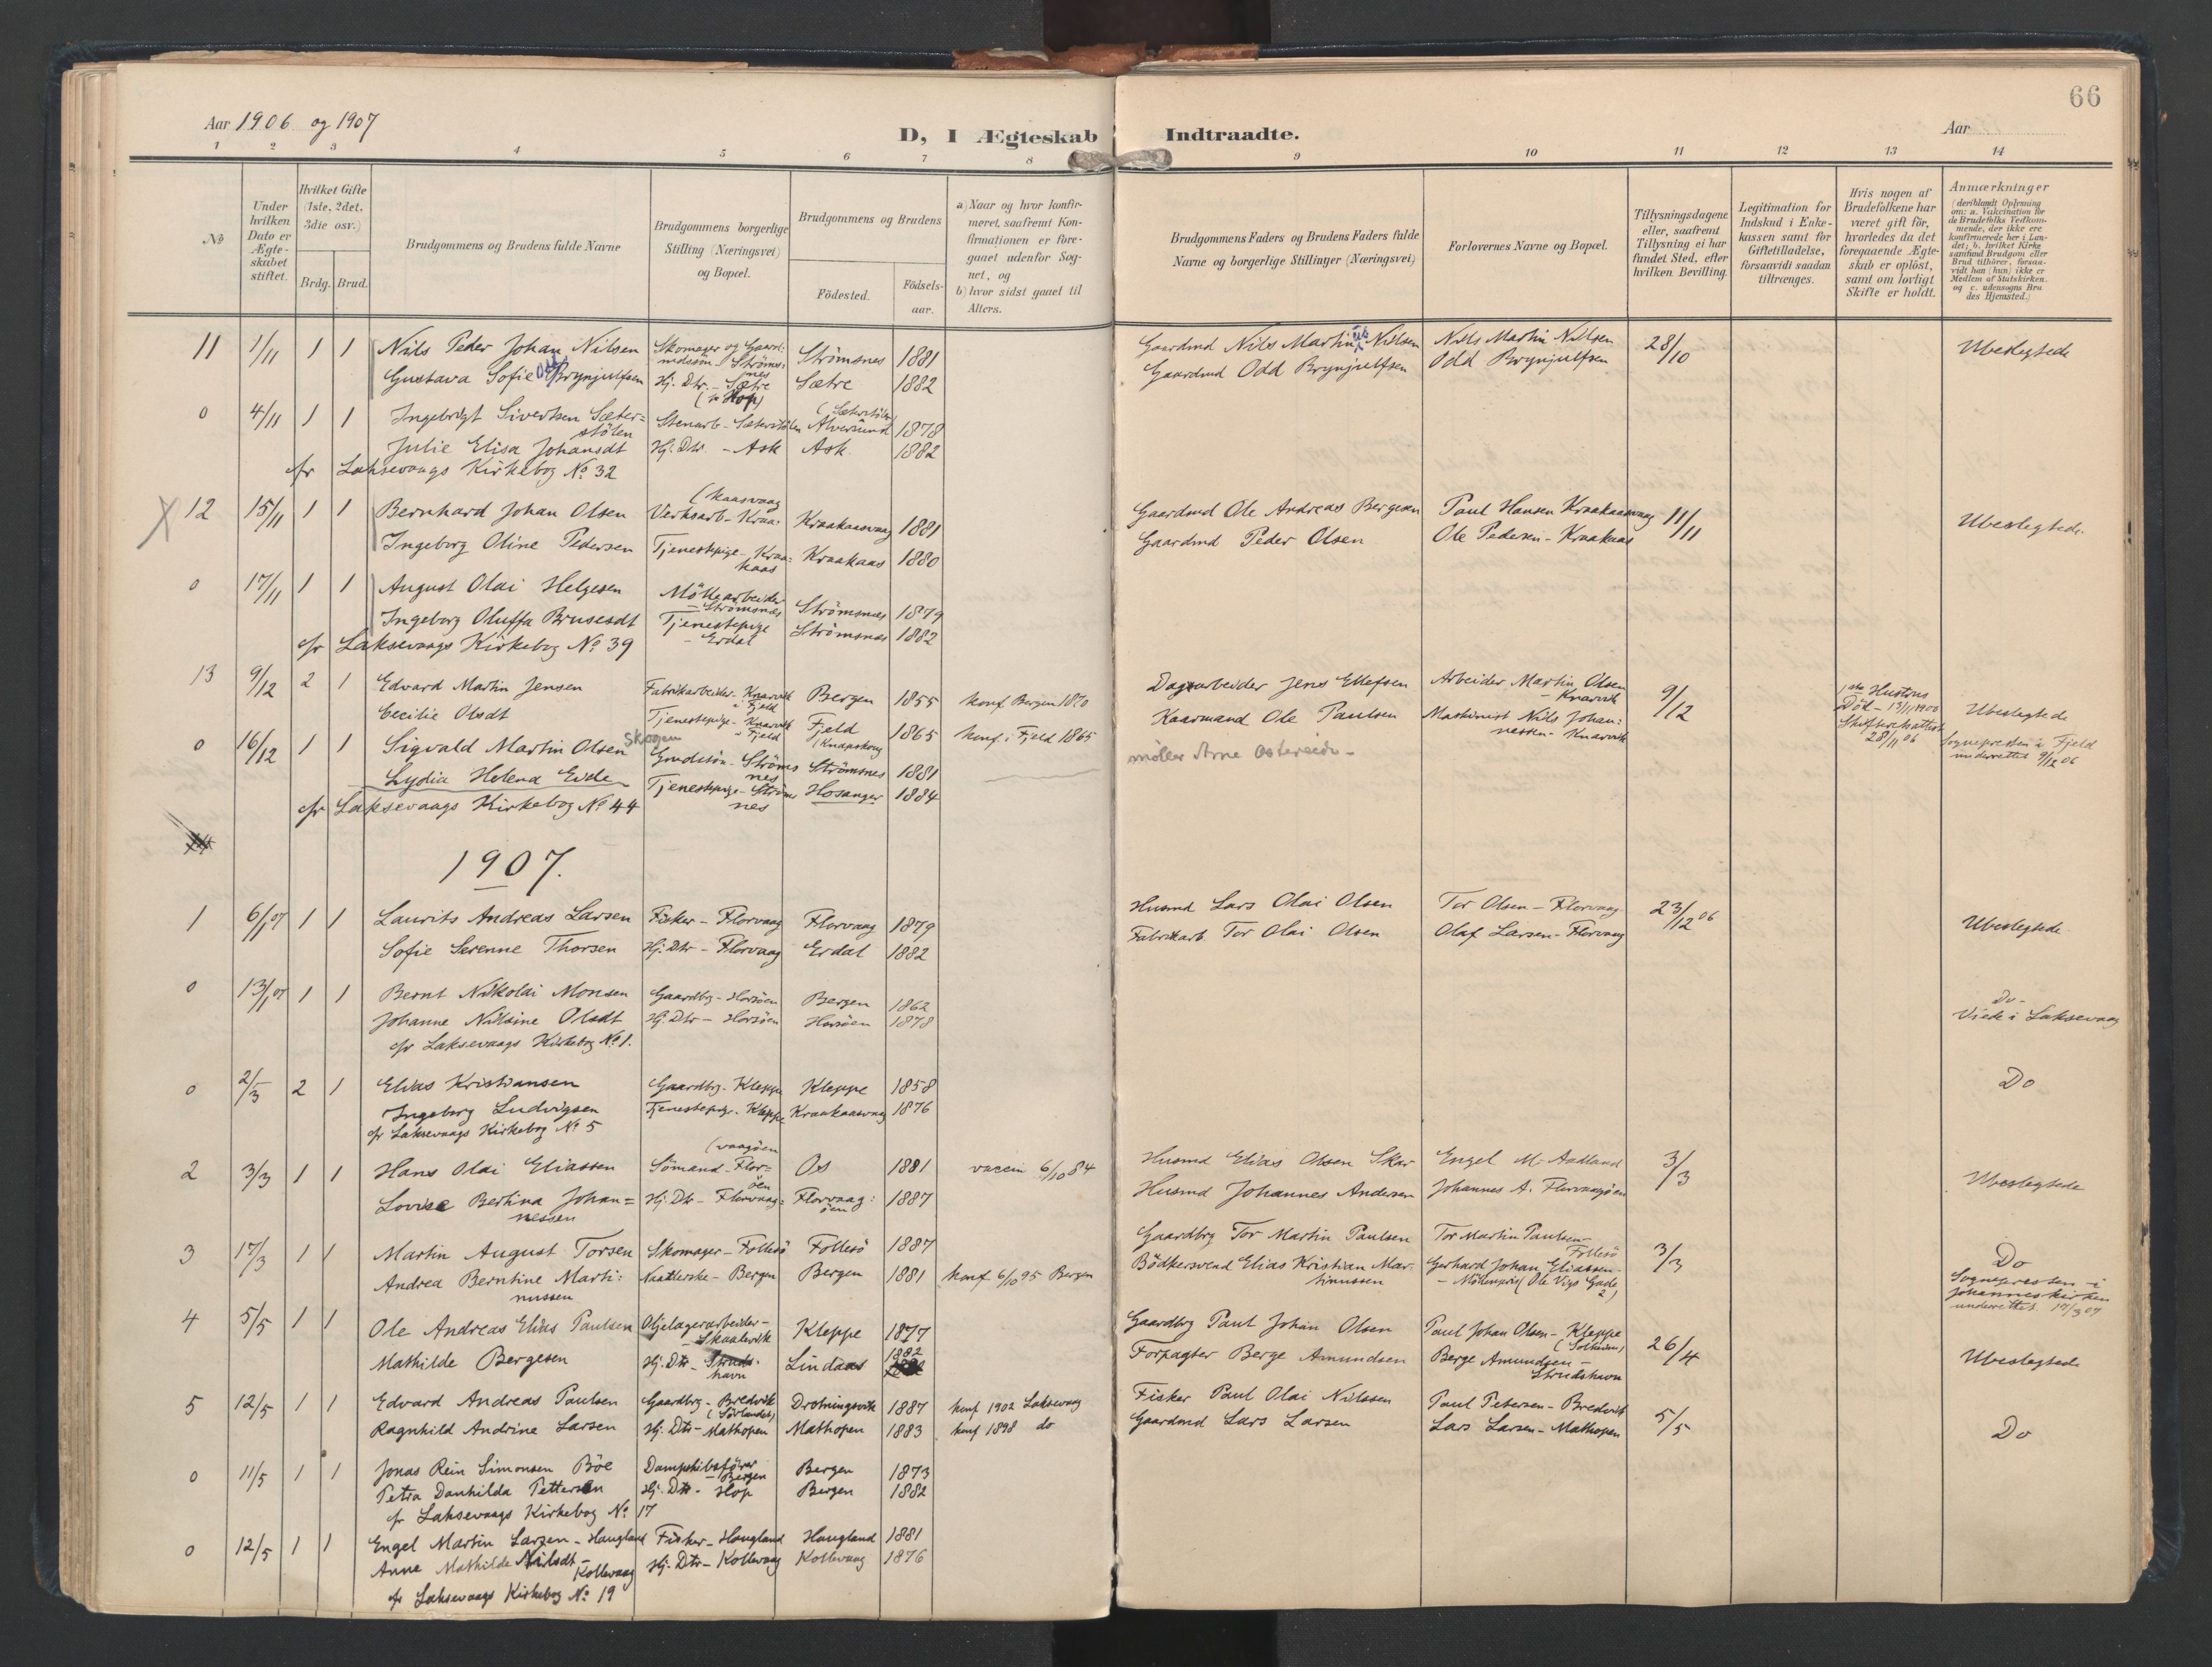 66
Aar 1906 og 1907
D, I Ægteskab Indtraadte.
Aar
1 2 3 4 5 6 7 8 9 10 11 12 13 14
№
Under hvilken Dato er Ægteskabet stiftet.
Hvilket Gifte (1ste, 2det, 3die osv.)
Brdg. Brud.
Brudgommens og Brudens fulde Navne
Brudgommens borgerlige Stilling (Næringsvei) og Bopæl.
Brudgommens og Brudens
Födested.
Födselsaar.
a) Naar og hvor konfirmeret, saafremt Konfirmationen er foregaaet udenfor Sognet, og
b) hvor sidst gaaet til Alters.
Brudgommens Faders og Brudens Faders fulde Navne og borgerlige Stillinger (Næringsvei)
Forlovernes Navne og Bopæl.
Tillysningsdagene eller, saafremt Tillysning ei har fundet Sted, efter hvilken Bevilling.
Legitimation for Indskud i Enkekassen samt for Giftetilladelse, forsaavidt saadan tiltrænges.
Hvis nogen af Brudefolkene har været gift för, hvorledes da det foregaaende Ægteskab er oplöst, samt om lovligt Skifte er holdt.
Anmærkninger (deriblandt Oplysning om: a. Vakcination for de Brudefolks Vedkommende, der ikke ere konfirmerede her i Landet; b. hvilket Kirkesamfund Brudgom eller Brud tilhörer, forsaavidt han (hun) ikke er Medlem af Statskirken. og c. udensogns Brudes Hjemsted.)
11 1/11 1 1 Nils Peder Johan Nilsen Skomager og Gaardmdssøn - Strömsnes Strömsnes 1881 Gaardmd Nils Martin Nilsen Nils Martin Nilsen 28/10 Ubeslegtede
Gustava Sofie Brynjulfsen Hj. Dtr. - Sætre (p Hop) Sætre 1882 Gaardmd Odd Brynjulfsen Odd Brynjulfsen
0 4/11 1 1 Ingebrigt Sivertsen Sæterstölen Stenarb - Sæterstölen (Sæterstölen) Alversund 1878
Julie Elisa Johansdt Hj. Dtr. - Ask Ask 1882
cfr Laksevaags Kirkebog No 32
X 12 15/11 1 1 Bernhard Johan Olsen Verksarb - Kraakaasvaag Kraakaasvaag 1881 Gaardmd Ole Andreas Bergesen Paul Hansen Kraakaasvaag 11/11 Ubeslegtede
Ingeborg Oline Pedersen Tjenestepige - Kraakaas Kraakaas 1880 Gaardmd Peder Olsen Ole Pedersen - Kraakaas
0 17/11 1 1 August Olai Helgesen Möllearbeider - Strömsnæs Strömsnæs 1879
Ingeborg Oluffa Brusesdt Tjenestepige - Erdal Strömsnæs 1882
cfr Laksevaags Kirkebog No 39
13 9/12 2 1 Edvard Martin Jensen Fabrikarbeider - Knarvik i Fjeld Bergen 1855 konf Bergen 1870 Dagarbeider Jens Ellefsen Arbeider Martin Olsen - Knarvik 9/12 1ste Hustrus Död - 13/11 1900 Skifteretsattest 28/11 06 Ubeslegtede
Cecilie Olsdt Tjenestepige - Knarvik i Fjeld Fjeld (Knapskog 1865 konf i Fjeld 1865 Kaarmand Ole Paulsen Maskinist Nils Johannessen - Knarvik Sognepresten i Fjeld underrettet 9/12 06
0 16/12 1 1 Sigvald Martin Olsen Skogen Gmdssön - Strömsnes Strömsnes 1881 møller Arne Ostereide -
Lydia Helena Eide Tjenestepige - Strömsnes Hosanger 1884
cfr Laksevaags Kirkebog No 44
1907.
1 6/1 07 1 1 Laurits Andreas Larsen Fisker - Florvaag Florvaag 1879 Husmd Lars Olai Olsen Tor Olsen - Florvaag 23/12 06 Ubeslegtede
Sofie Serenne Thorsen Hj. Dtr - Florvaag Erdal 1882 Fabrikarb. Tor Olai Olsen Olaf Larsen - Florvaag
0 13/1 07 1 1 Bernt Nikolai Monsen Gaardbr - Horsöen Bergen 1862 Do -
Johanne Nilsine Olsdt Hj. Dtr - Horsöen Horsöen 1878 Viede i Laksevaag
cfr Laksevaags Kirkebog No 1.
0 2/3 2 1 Elias Kristiansen Gaardbr. Kleppe Kleppe 1858 Do
Ingeborg Ludvigsen Tjenestepige. Kleppe Kraakaasvaag 1876
cfr Laksevaags Kirkebog No 5
2 3/3 1 1 Hans Olai Eliassen Sömand - Florvaagöen Os 1881 vaccin 6/10 84 Husmd Elias Olsen Skar Engel M. Aadland 3/3 Ubeslegtede
Lovise Bertina Johannessen Hj. Dtr - Florvaagöen Florvaagöen 1887 Husmd Johannes Andersen Johannes A. Florvaagöen
3 17/3 1 1 Martin August Torsen Skomager - Follesö Follesö 1887 Gaardbrg Tor Martin Paulsen Tor Martin Paulsen - Follesö 3/3 Do
Andrea Berntine Martinussen Naatlerske - Bergen Bergen 1881 konf 6/10 95 Bergen Bödkersvend Elias Kristian Martinussen Gerhard Johan Eliassen - Möhlenpris (Ole Vigs Gade 2) Sognepresten i Johanneskirken underrettet. 17/3 07
4 5/5 1 1 Ole Andreas Elias Paulsen Oljelagerarbeider - Skaalevik Kleppe 1877 Gaardbrg Paul Johan Olsen Paul Johan Olsen - Kleppe (Solheim) 26/4 Ubeslegtede
Mathilde Bergesen Hj. Dtr - Strudshavn Lindaas 1882 Forpagter Berge Amundsen Berge Amundsen - Strudshavn
5 12/5 1 1 Edvard Andreas Paulsen Gaardbrg - Bredvik (Sörlandet) Drotningsvik 1887 konf 1902 Laksevaag Fisker Paul Olai Nilssen Paul Petersen - Bredvik 5/5 Do
Ragnhild Andrine Larsen Hj. Dtr - Mathopen Mathopen 1883 konf 1898 do Gaardmd Lars Larsen Lars Larsen - Mathopen
0 11/5 1 1 Jonas Rein Simonsen Böe Dampskibsförer - Bergen Bergen 1873
Petra Danhilda Pettersen Hj. Dtr - Hop Bergen 1882
cfr Laksevaags Kirkebog No 17
0 12/5 1 1 Engel Martin Larsen - Haugland Fisker - Haugland Haugland 1881
Anne Mathilde Nilsdt - Kollevaag Hj. Dtr - Kollevaag Kollevaag 1876
cfr Laksevaags Kirkebog No 19